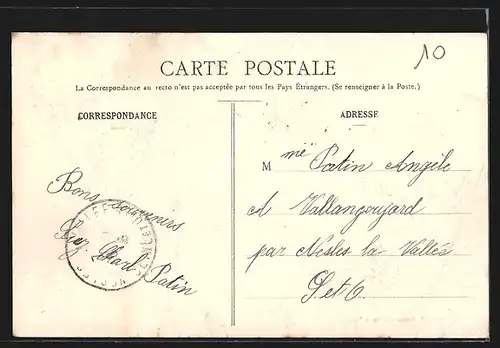 10
CARTE POSTALE
La Correspondance au recto n'est pas acceptée par tous les Pays Étrangers. (Se renseigner à la Poste.)
CORRESPONDANCE
ADRESSE
Bons souvenirs
Patin
M me Patin Angèle
A Vallangoujard
par Nesles la Vallée
S et O.